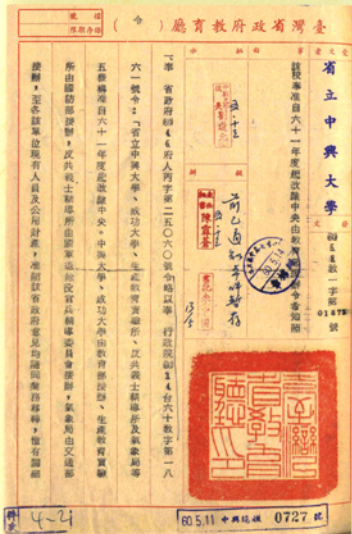 臺灣省政府教育廳(令)
省立中興大學
該校奉准自六十一年度起改隸中央由教育部接辦令希知照
01875
號
「奉 省政府60 4 6府人丙字第二五〇六〇號令略以奉 行政院60 2 4台六十教字第一八
六一號令:「省立中興大學、成功大學、生產教育實驗所、反共義士輔導所及氣象局等
五機構准自六十一年度起改隸中央。中興大學、成功大學由教育部接辦、生產教育實驗
所由國防部接辦,反共義士輔導所由國軍退除役官兵輔導委員會接辦,氣象局由交通部
接辦,至各該單位現有人員及公用財產,准照該省政府意見均隨同業務移轉,惟有關經
陳霖蒼
60.5.14
臺灣省政府教育廳印
4-21
60.5.11 中興總收 0727 號